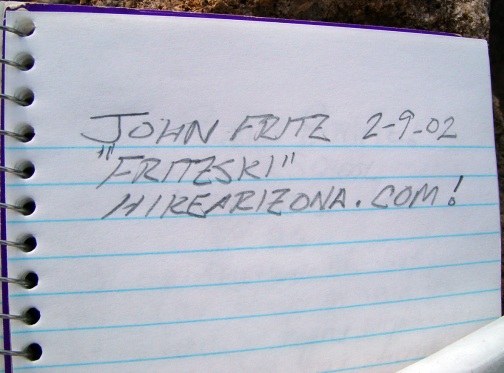 JOHN FRITZ 2-9-02
"FRITZSKI"
HIKEARIZONA.COM!